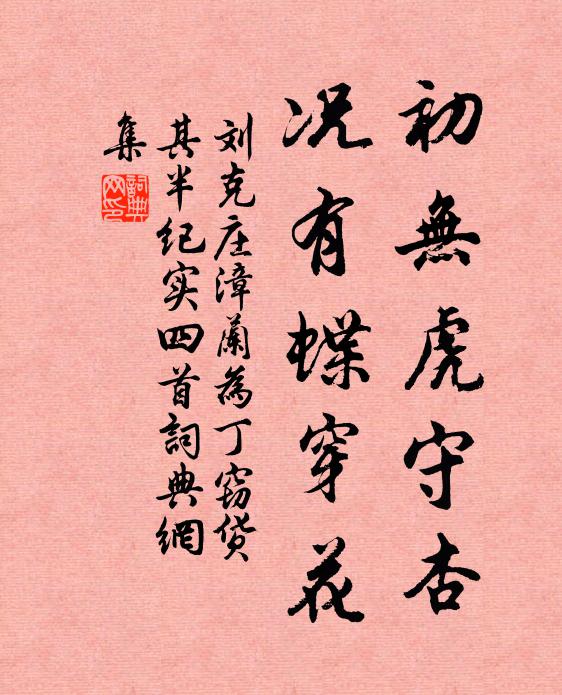 初無虎守杏
况有蝶穿花
刘克庄漳蘭為丁窃货
其半纪实四首詞典網
集
詞典网印